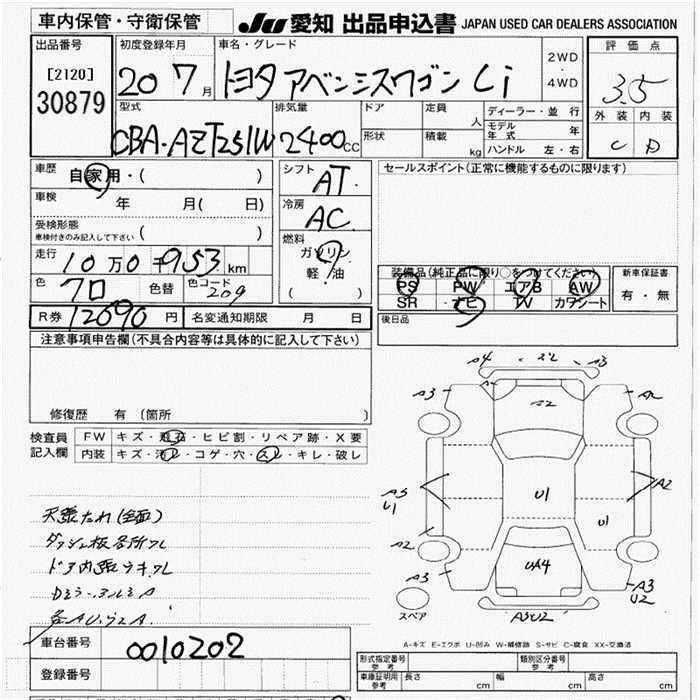 車内保管・守衛保管
JU 愛知 出品申込書 JAPAN USED CAR DEALERS ASSOCIATION
出品番号
[2120]
30879
初度登録年月
20 7月
車名・グレード
トヨタ アベンシスワゴン Li
2WD
・
4WD
評価点
3.5
外装 内装
C D
型式
CBA-AZT251W
排気量
2400cc
ドア
形状
定員 人
積載 kg
ディーラー・並行
モデル年式 年
ハンドル 左・右
車歴 自家用・( )
車検 年 月( 日)
受検形態
車検付きのみ記入して下さい ( )
走行 10万0千953km
色 クロ 色替 色コード 209
R券 12690円 名変通知期限 月 日
シフト
AT
冷房
AC
燃料
ガソリン
軽・油
( )
セールスポイント(正常に機能するものに限ります)
装備品(純正品に限り○をつけてください)
PS PW エアB AW
SR ナビ TV カワシート
新車保証書
有・無
後日品
注意事項申告欄(不具合内容等は具体的に記入して下さい)
修復歴 有 〔箇所 〕
検査員
記入欄
FW キズ・飛石・ヒビ割・リペア跡・X要
内装 キズ・汚レ・コゲ・穴・スレ・キレ・破レ
天張たれ(全面)
ダッシュ板各所フレ
ドア内張ウキフレ
A4 A3
A3 A2
A2
A3
U1
U1
U1
A2
A2
UA4
A3
A3
U2
A3U2
スペア
A-キズ E-エクボ U-凹み W-補修跡 S-サビ C-腐食 XX-交換済
車台番号 0010202
登録番号
形式指定番号
参考
類別区分番号
参考
車庫証明用
参考
長さ cm 幅 cm 高さ cm